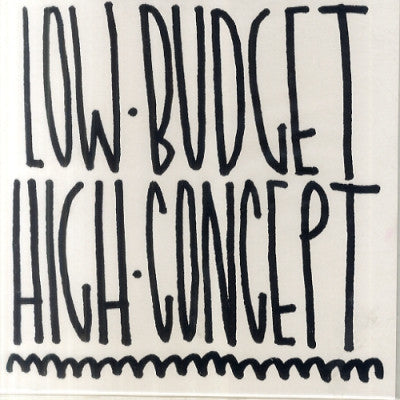 LOW·BUDGET
HIGH·CONCEPT